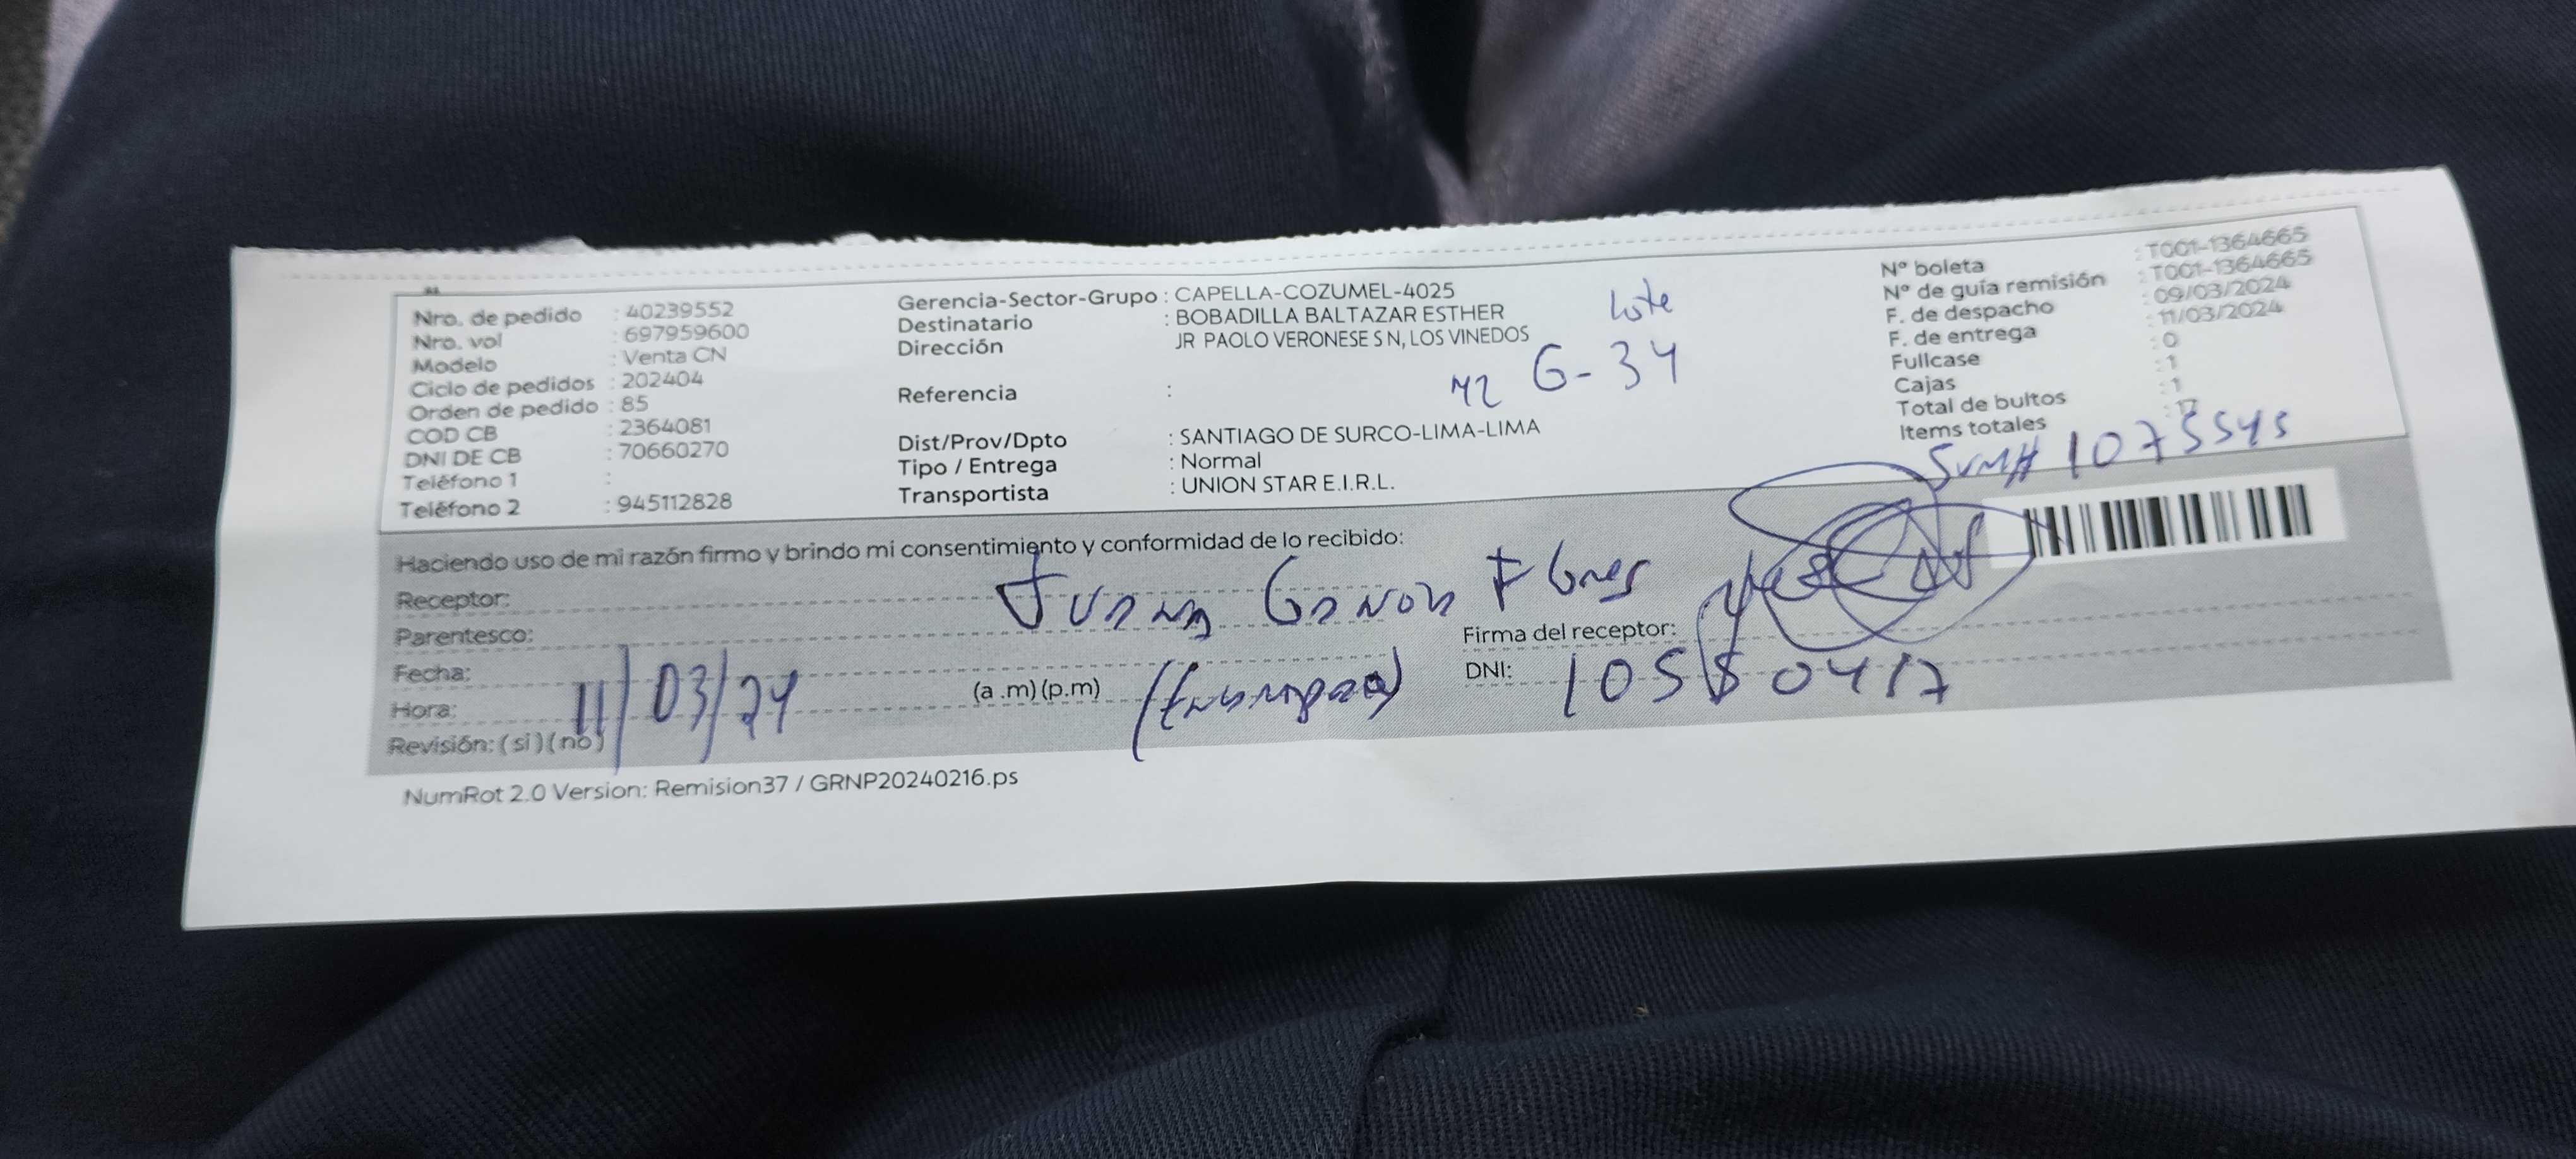 Nro. de pedido : 40239552
Nro. vol : 697959600
Modelo : Venta CN
Ciclo de pedidos : 202404
Orden de pedido : 85
COD CB : 2364081
DNI DE CB : 70660270
Teléfono 1 :
Teléfono 2 : 945112828
Gerencia-Sector-Grupo : CAPELLA-COZUMEL-4025
Destinatario : BOBADILLA BALTAZAR ESTHER
Dirección JR PAOLO VERONESE S N, LOS VINEDOS
Lote
Mz G-34
Referencia :
Dist/Prov/Dpto : SANTIAGO DE SURCO-LIMA-LIMA
Tipo / Entrega : Normal
Transportista : UNION STAR E.I.R.L.
N° boleta : T001-1364665
N° de guía remisión : T001-1364665
F. de despacho : 09/03/2024
F. de entrega : 11/03/2024
Fullcase : 0
Cajas : 1
Total de bultos : 1
Items totales : 17
Haciendo uso de mi razón firmo y brindo mi consentimiento y conformidad de lo recibido:
Receptor: Juana Flores
Parentesco:
Firma del receptor:
Fecha: 11/03/24
(a .m) (p.m)
DNI: 10550417
Hora:
Revisión: ( si ) ( no )
NumRot 2.0 Version: Remision37 / GRNP20240216.ps